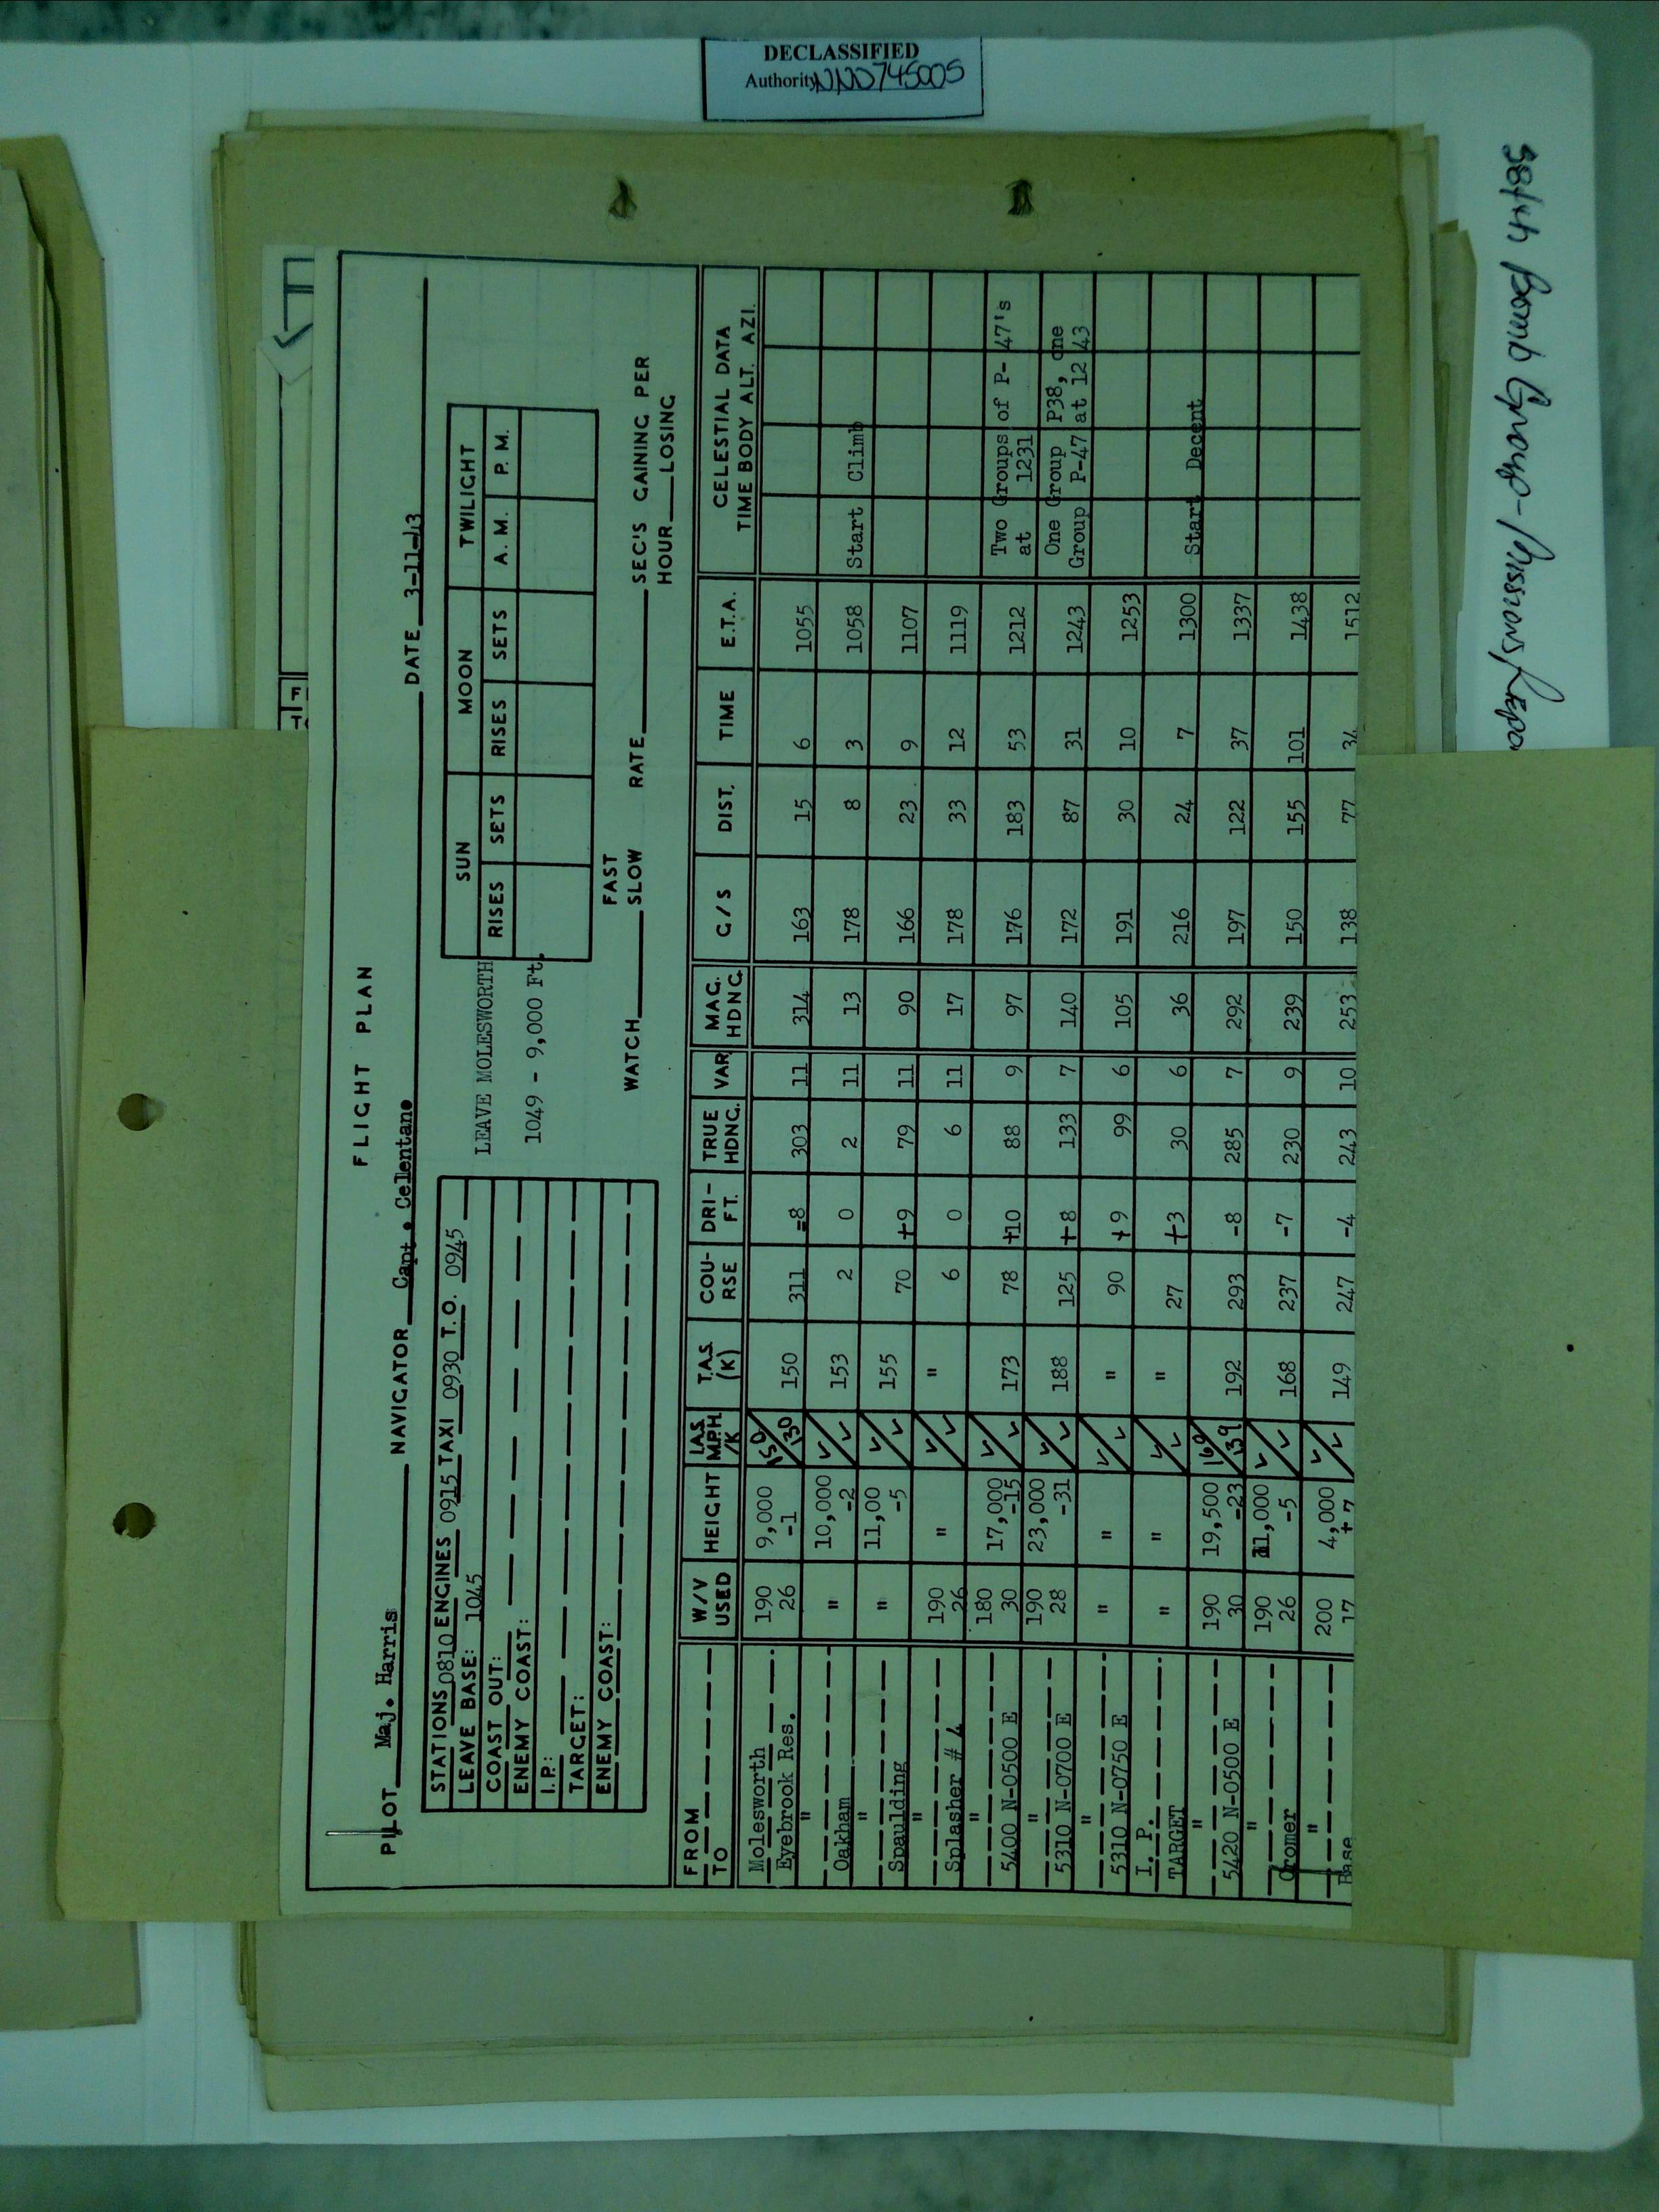 DECLASSIFIED
Authority NND745005
FLIGHT PLAN
PILOT Maj. Harris NAVIGATOR Capt. Cellentano DATE 3-11-43
STATIONS 0810 ENGINES 0915 TAXI 0930 T.O. 0945
LEAVE BASE: 1045
COAST OUT:
ENEMY COAST:
I.P.:
TARGET:
ENEMY COAST:
LEAVE MOLESWORTH
1049 - 9,000 Ft.
SUN MOON TWILIGHT
RISES SETS RISES SETS A. M. P. M.
WATCH FAST SLOW RATE SEC'S GAINING PER
HOUR LOSING
FROM TO W/V USED HEIGHT I.A.S. M.P.H. /K T.A.S. (K) COU-RSE DRI-FT. TRUE HDNG. VAR MAG. HDNG. G/S DIST. TIME E.T.A. CELESTIAL DATA TIME BODY ALT. AZI.
Molesworth Eyebrook Res. 190 26 9,000 -1 150/130 150 311 =8 303 11 314 163 15 6 1055
" Oakham " 10,000 -2 ✓/✓ 153 2 0 2 11 13 178 8 3 1058 Start Climb
" Spaulding " 11,00 -5 ✓/✓ 155 70 +9 79 11 90 166 23 9 1107
" Splasher # 4 190 26 " ✓/✓ " 6 0 6 11 17 178 33 12 1119
" 5400 N-0500 E 180 30 17,000 -15 ✓/✓ 173 78 +10 88 9 97 176 183 53 1212 Two Groups of P-47's at 1231
" 5310 N-0700 E 190 28 23,000 -31 ✓/✓ 188 125 +8 133 7 140 172 87 31 1243 One Group P38, one Group P-47 at 12 43
" 5310 N-0750 E " " ✓/✓ " 90 +9 99 6 105 191 30 10 1253
I. P. TARGET " " ✓/✓ " 27 +3 30 6 36 216 24 7 1300 Start Decent
" 5420 N-0500 E 190 30 19,500 -23 160/139 192 293 -8 285 7 292 197 122 37 1337
" Cromer 190 26 11,000 -5 ✓/✓ 168 237 -7 230 9 239 150 155 101 1438
" Base 200 17 4,000 +7 ✓/✓ 149 247 -4 243 10 253 138 77 34 1512